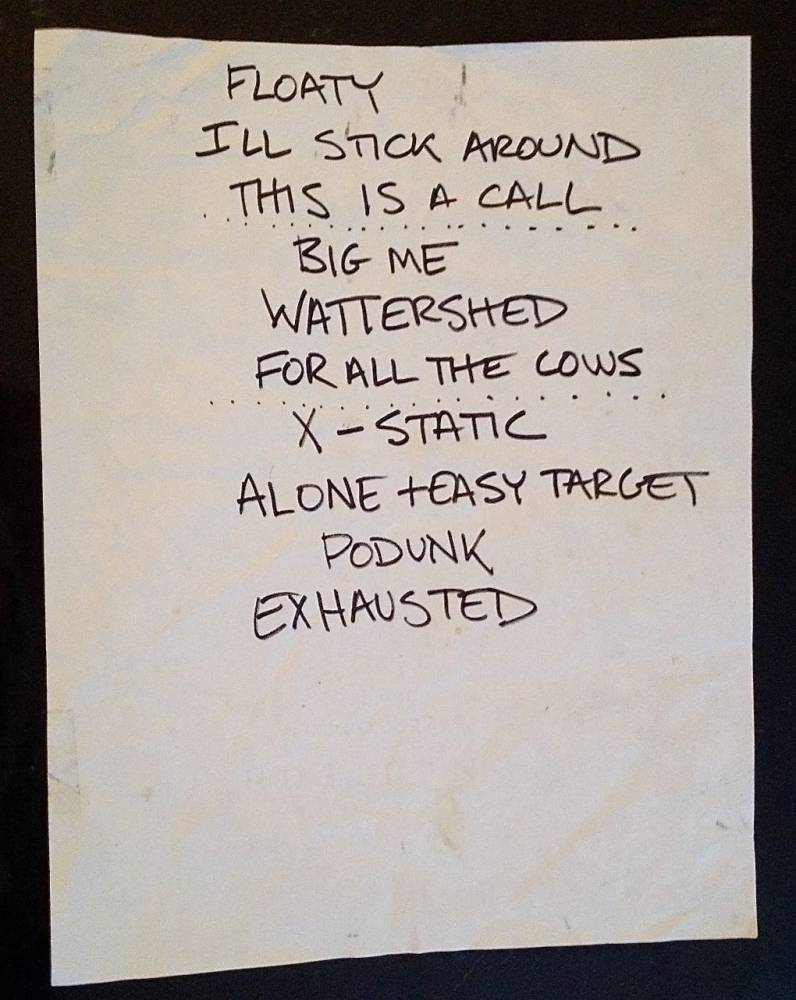 FLOATY
ILL STICK AROUND
THIS IS A CALL
BIG ME
WATTERSHED
FOR ALL THE COWS
X-STATIC
ALONE + EASY TARGET
PODUNK
EXHAUSTED